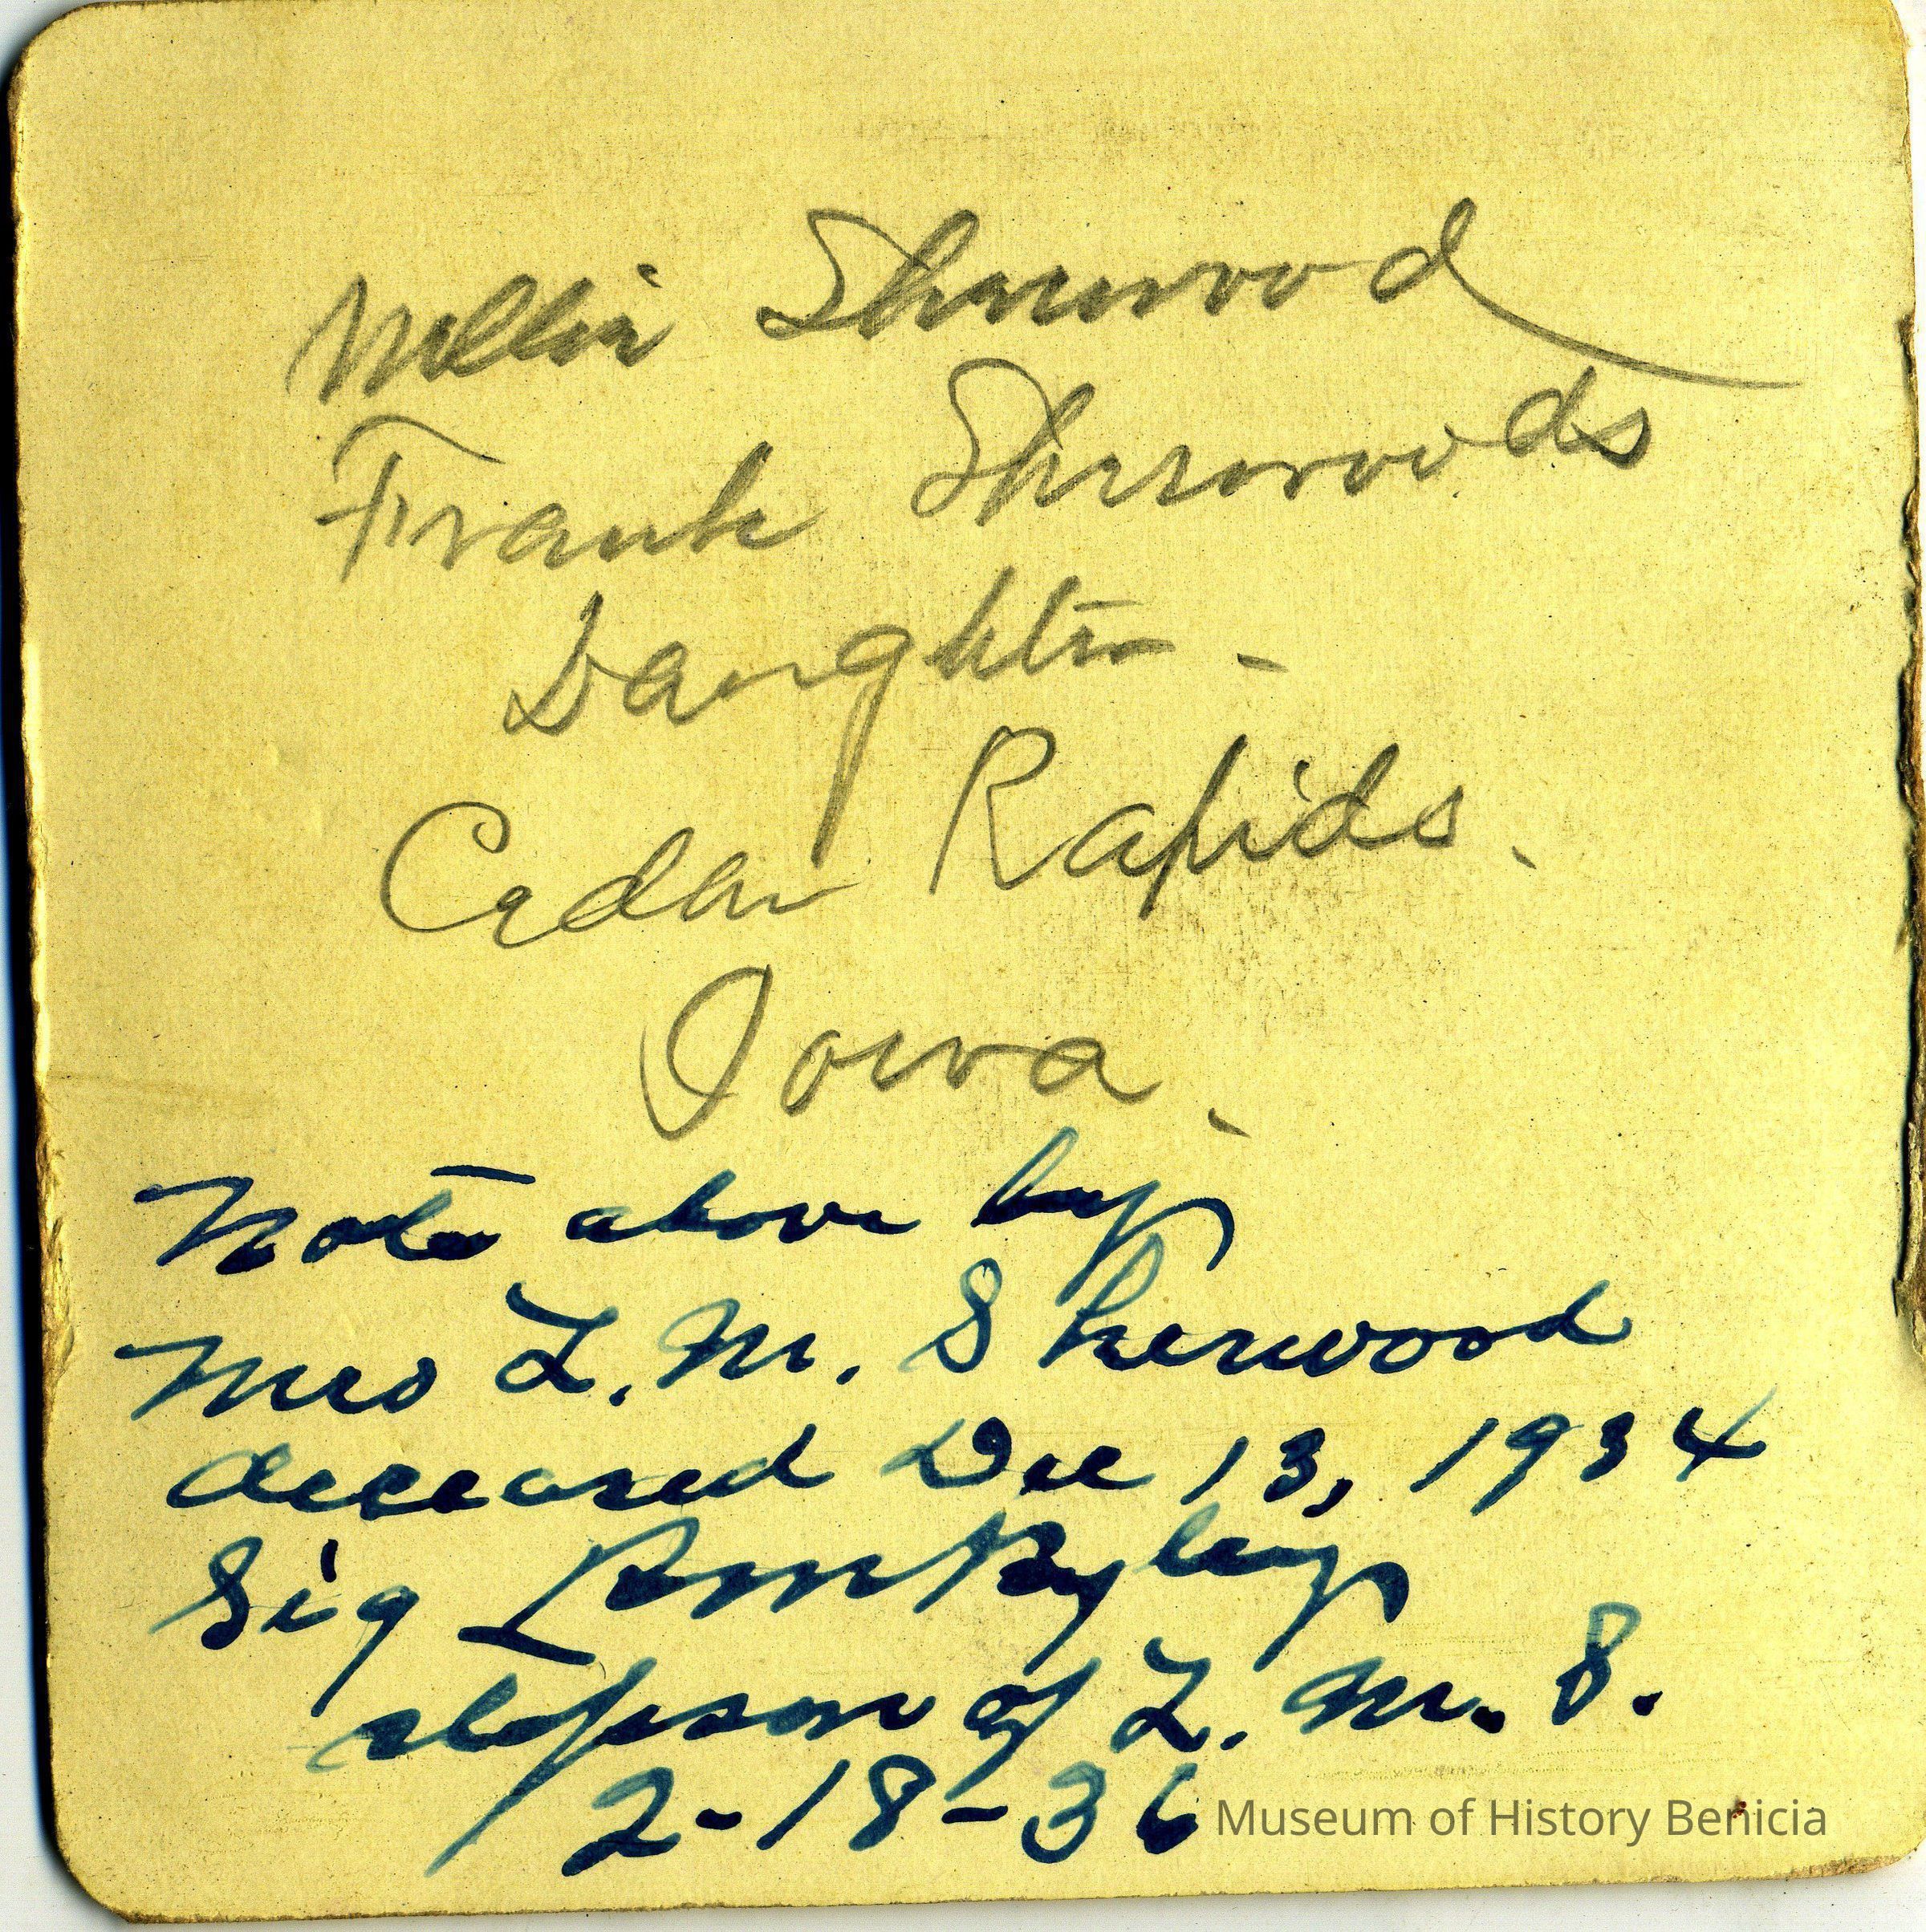 Nellie Sherwood
Frank Sherwoods
Daughter -
Cedar Rapids.
Iowa.
Note above by
Mrs L. M. Sherwood
deceased Dec 13, 1934
Sig
stepson of L. M. S.
2-18-36
Museum of History Benicia